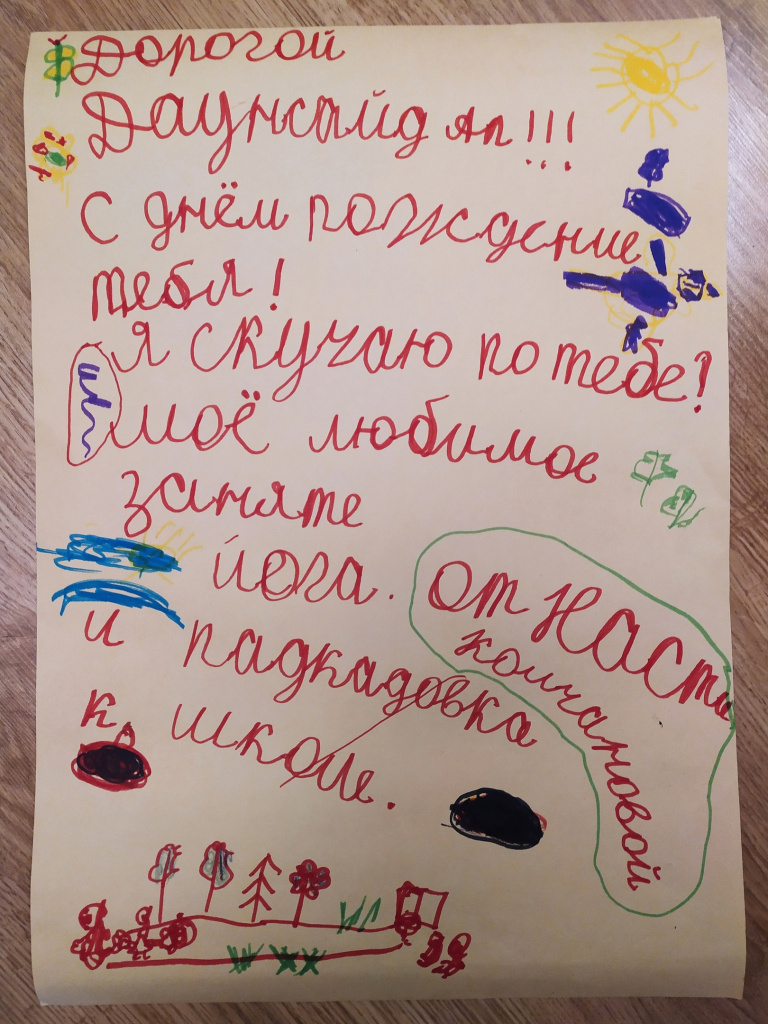 Дорогой
Даунсайд Ап!!!
С днём рождение
тебя!
Я скучаю по тебе!
моё любимое
заняте
йога.
и падкадовка
к школе.
от Насти
колчановой